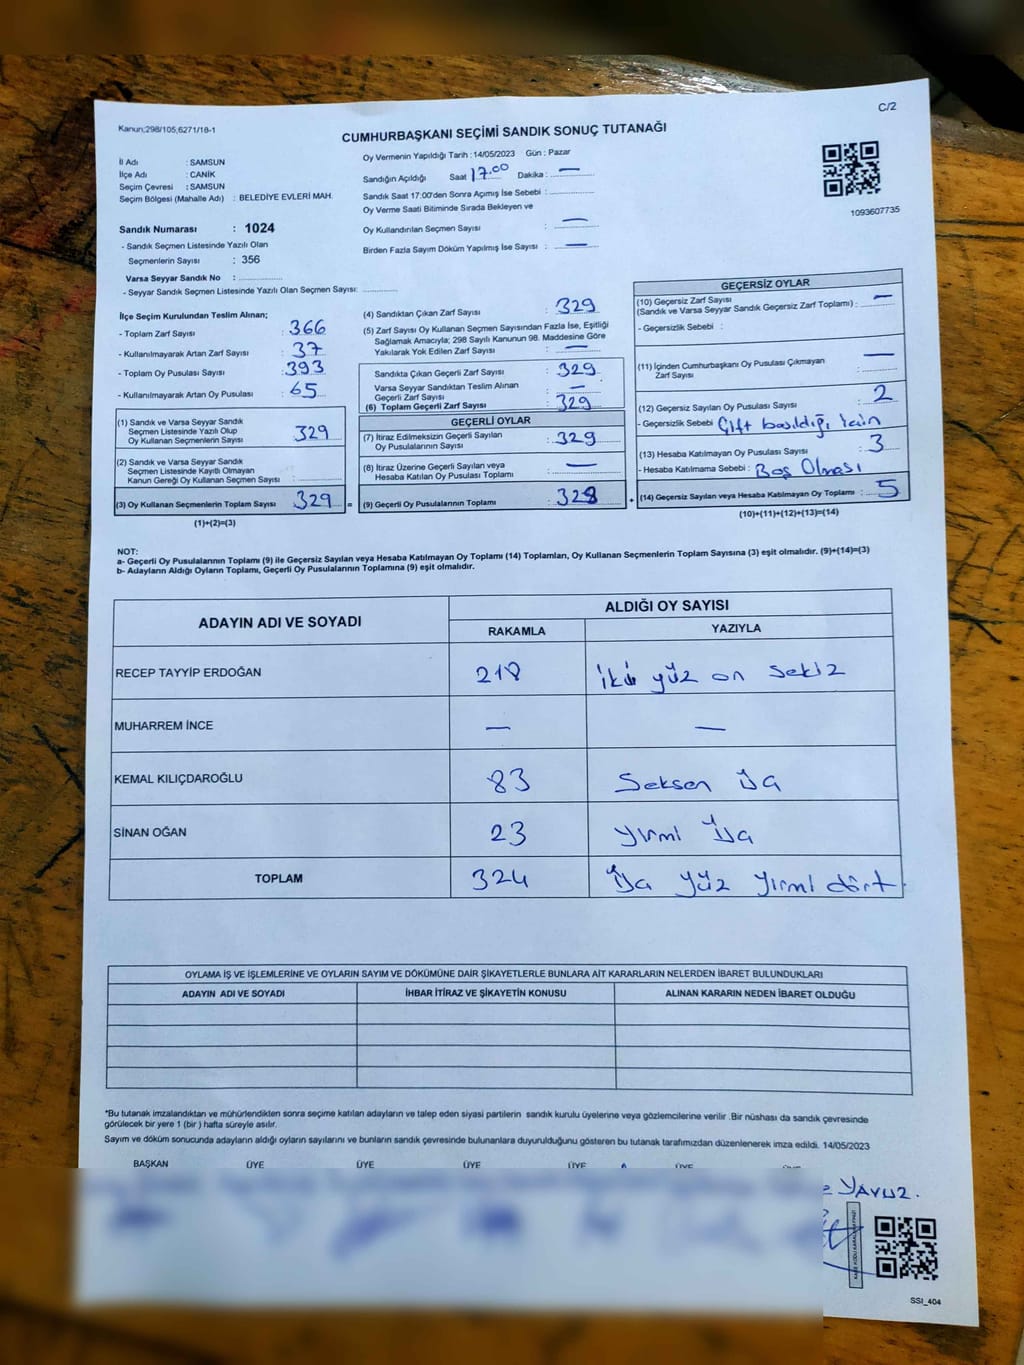 C/2
Kanun;298/105,6271/18-1
CUMHURBAŞKANI SEÇİMİ SANDIK SONUÇ TUTANAĞI
İl Adı : SAMSUN
İlçe Adı : CANİK
Seçim Çevresi : SAMSUN
Seçim Bölgesi (Mahalle Adı) : BELEDİYE EVLERİ MAH.
Sandık Numarası : 1024
- Sandık Seçmen Listesinde Yazılı Olan
Seçmenlerin Sayısı : 356
Varsa Seyyar Sandık No :
- Seyyar Sandık Seçmen Listesinde Yazılı Olan Seçmen Sayısı:
Oy Vermenin Yapıldığı Tarih : 14/05/2023 Gün : Pazar
Sandığın Açıldığı Saat 17.00 Dakika : —
Sandık Saat 17:00'den Sonra Açımış İse Sebebi :
Oy Verme Saati Bitiminde Sırada Bekleyen ve
Oy Kullandırılan Seçmen Sayısı : —
Birden Fazla Sayım Döküm Yapılmış İse Sayısı : —
1093607735
İlçe Seçim Kurulundan Teslim Alınan;
- Toplam Zarf Sayısı : 366
- Kullanılmayarak Artan Zarf Sayısı : 37
- Toplam Oy Pusulası Sayısı : 393
- Kullanılmayarak Artan Oy Pusulası : 65
(1) Sandık ve Varsa Seyyar Sandık
Seçmen Listesinde Yazılı Olup
Oy Kullanan Seçmenlerin Sayısı : 329
(2) Sandık ve Varsa Seyyar Sandık
Seçmen Listesinde Kayıtlı Olmayan
Kanun Gereği Oy Kullanan Seçmen Sayısı :
(3) Oy Kullanan Seçmenlerin Toplam Sayısı : 329 =
(1)+(2)=(3)
(4) Sandıktan Çıkan Zarf Sayısı : 329
(5) Zarf Sayısı Oy Kullanan Seçmen Sayısından Fazla İse, Eşitliği
Sağlamak Amacıyla; 298 Sayılı Kanunun 98. Maddesine Göre
Yakılarak Yok Edilen Zarf Sayısı : —
Sandıkta Çıkan Geçerli Zarf Sayısı : 329
Varsa Seyyar Sandıktan Teslim Alınan
Geçerli Zarf Sayısı : —
(6) Toplam Geçerli Zarf Sayısı : 329
GEÇERLİ OYLAR
(7) İtiraz Edilmeksizin Geçerli Sayılan
Oy Pusulalarının Sayısı : 329
(8) İtiraz Üzerine Geçerli Sayılan veya
Hesaba Katılan Oy Pusulası Toplamı : —
(9) Geçerli Oy Pusulalarının Toplamı : 328 +
GEÇERSİZ OYLAR
(10) Geçersiz Zarf Sayısı
(Sandık ve Varsa Seyyar Sandık Geçersiz Zarf Toplamı) : —
- Geçersizlik Sebebi :
(11) İçinden Cumhurbaşkanı Oy Pusulası Çıkmayan
Zarf Sayısı : —
(12) Geçersiz Sayılan Oy Pusulası Sayısı : 2
- Geçersizlik Sebebi : Çift basıldığı için
(13) Hesaba Katılmayan Oy Pusulası Sayısı : 3
- Hesaba Katılmama Sebebi : Boş Olması
(14) Geçersiz Sayılan veya Hesaba Katılmayan Oy Toplamı : 5
(10)+(11)+(12)+(13)=(14)
NOT:
a- Geçerli Oy Pusulalarının Toplamı (9) ile Geçersiz Sayılan veya Hesaba Katılmayan Oy Toplamı (14) Toplamları, Oy Kullanan Seçmenlerin Toplam Sayısına (3) eşit olmalıdır. (9)+(14)=(3)
b- Adayların Aldığı Oyların Toplamı, Geçerli Oy Pusulalarının Toplamına (9) eşit olmalıdır.
ADAYIN ADI VE SOYADI ALDIĞI OY SAYISI
RAKAMLA YAZIYLA
RECEP TAYYİP ERDOĞAN 218 iki yüz on sekiz
MUHARREM İNCE — —
KEMAL KILIÇDAROĞLU 83 Seksen üç
SİNAN OĞAN 23 Yirmi üç
TOPLAM 324 üç yüz yirmi dört
OYLAMA İŞ VE İŞLEMLERİNE VE OYLARIN SAYIM VE DÖKÜMÜNE DAİR ŞİKAYETLERLE BUNLARA AİT KARARLARIN NELERDEN İBARET BULUNDUKLARI
ADAYIN ADI VE SOYADI İHBAR İTİRAZ VE ŞİKAYETİN KONUSU ALINAN KARARIN NEDEN İBARET OLDUĞU
*Bu tutanak imzalandıktan ve mühürlendikten sonra seçime katılan adayların ve talep eden siyasi partilerin sandık kurulu üyelerine veya gözlemcilerine verilir .Bir nüshası da sandık çevresinde
görülecek bir yere 1 (bir ) hafta süreyle asılır.
Sayım ve döküm sonucunda adayların aldığı oyların sayılarını ve bunların sandık çevresinde bulunanlara duyurulduğunu gösteren bu tutanak tarafımızdan düzenlenerek imza edildi. 14/05/2023
BAŞKAN ÜYE ÜYE ÜYE ÜYE ÜYE
YAVUZ.
SSI_404